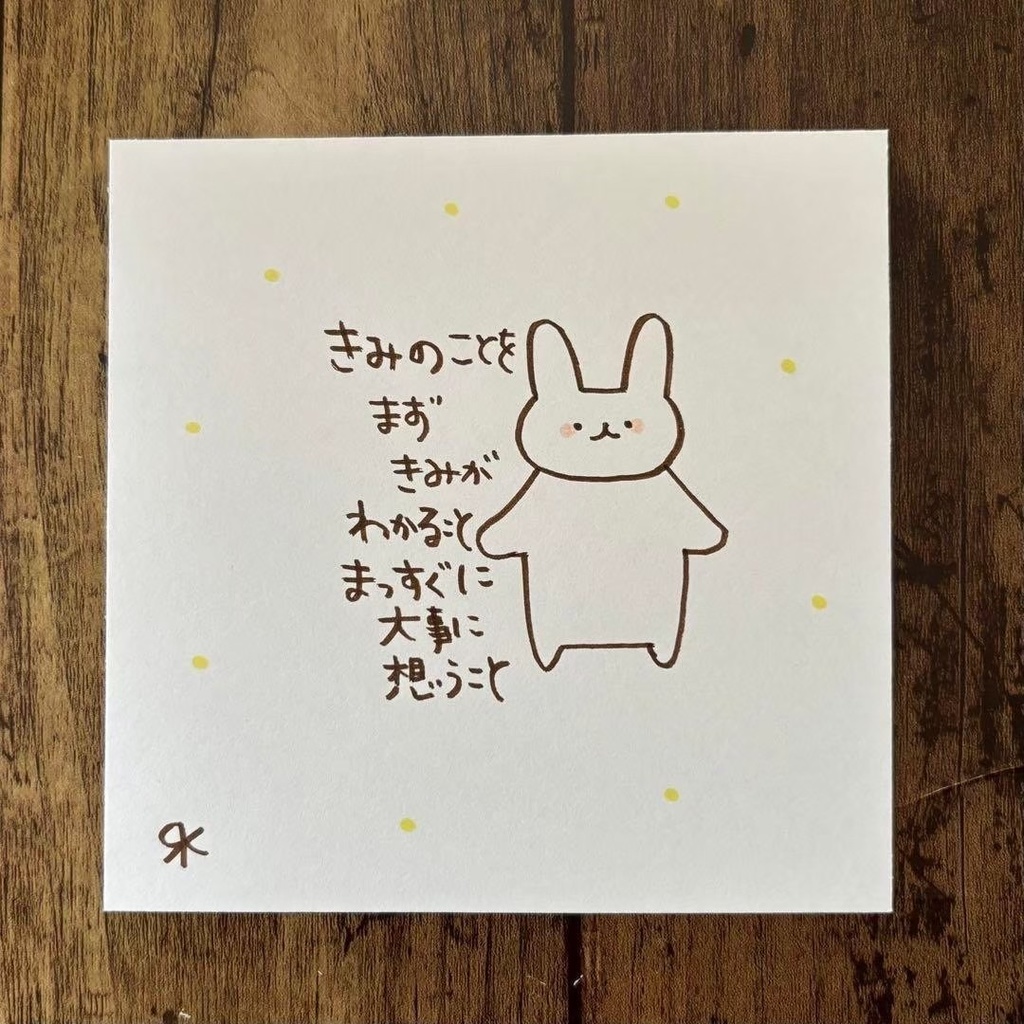 きみのことを
まず
きみが
わかること
まっすぐに
大事に
想うこと